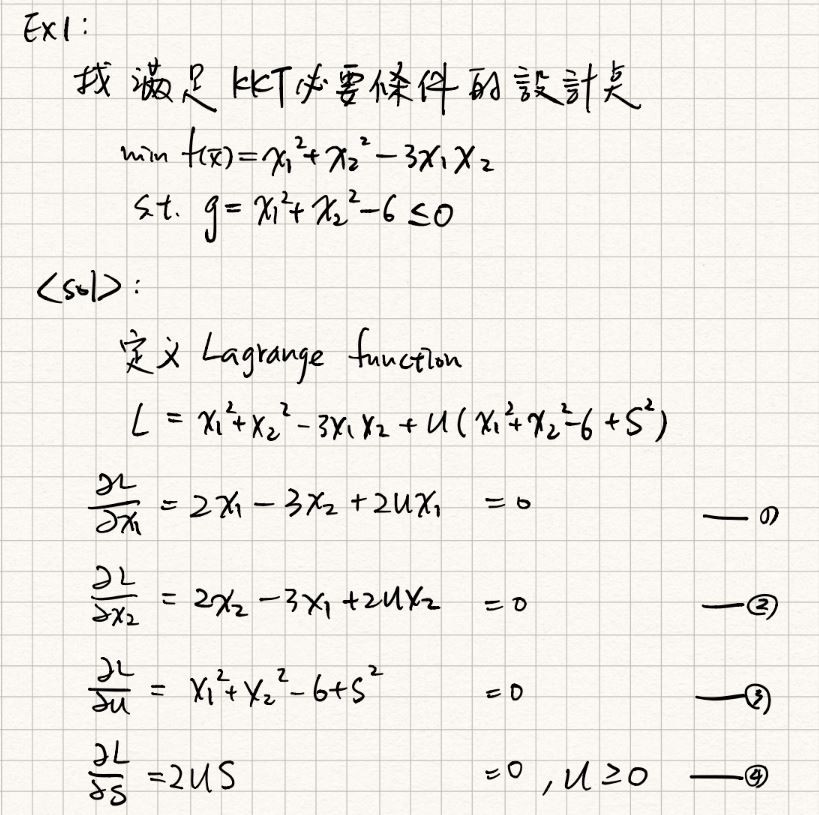 Ex1:
找滿足KKT必要條件的設計點
min f(x̄)=x₁²+x₂²-3x₁x₂
s.t. g=x₁²+x₂²-6≤0
<sol>:
定义 Lagrange function
L = x₁²+x₂²-3x₁x₂+u(x₁²+x₂²-6+S²)
∂L/∂x₁ = 2x₁-3x₂+2ux₁ =0 —①
∂L/∂x₂ = 2x₂-3x₁+2ux₂ =0 —②
∂L/∂u = x₁²+x₂²-6+S² =0 —③
∂L/∂S =2uS =0 , u≥0 —④